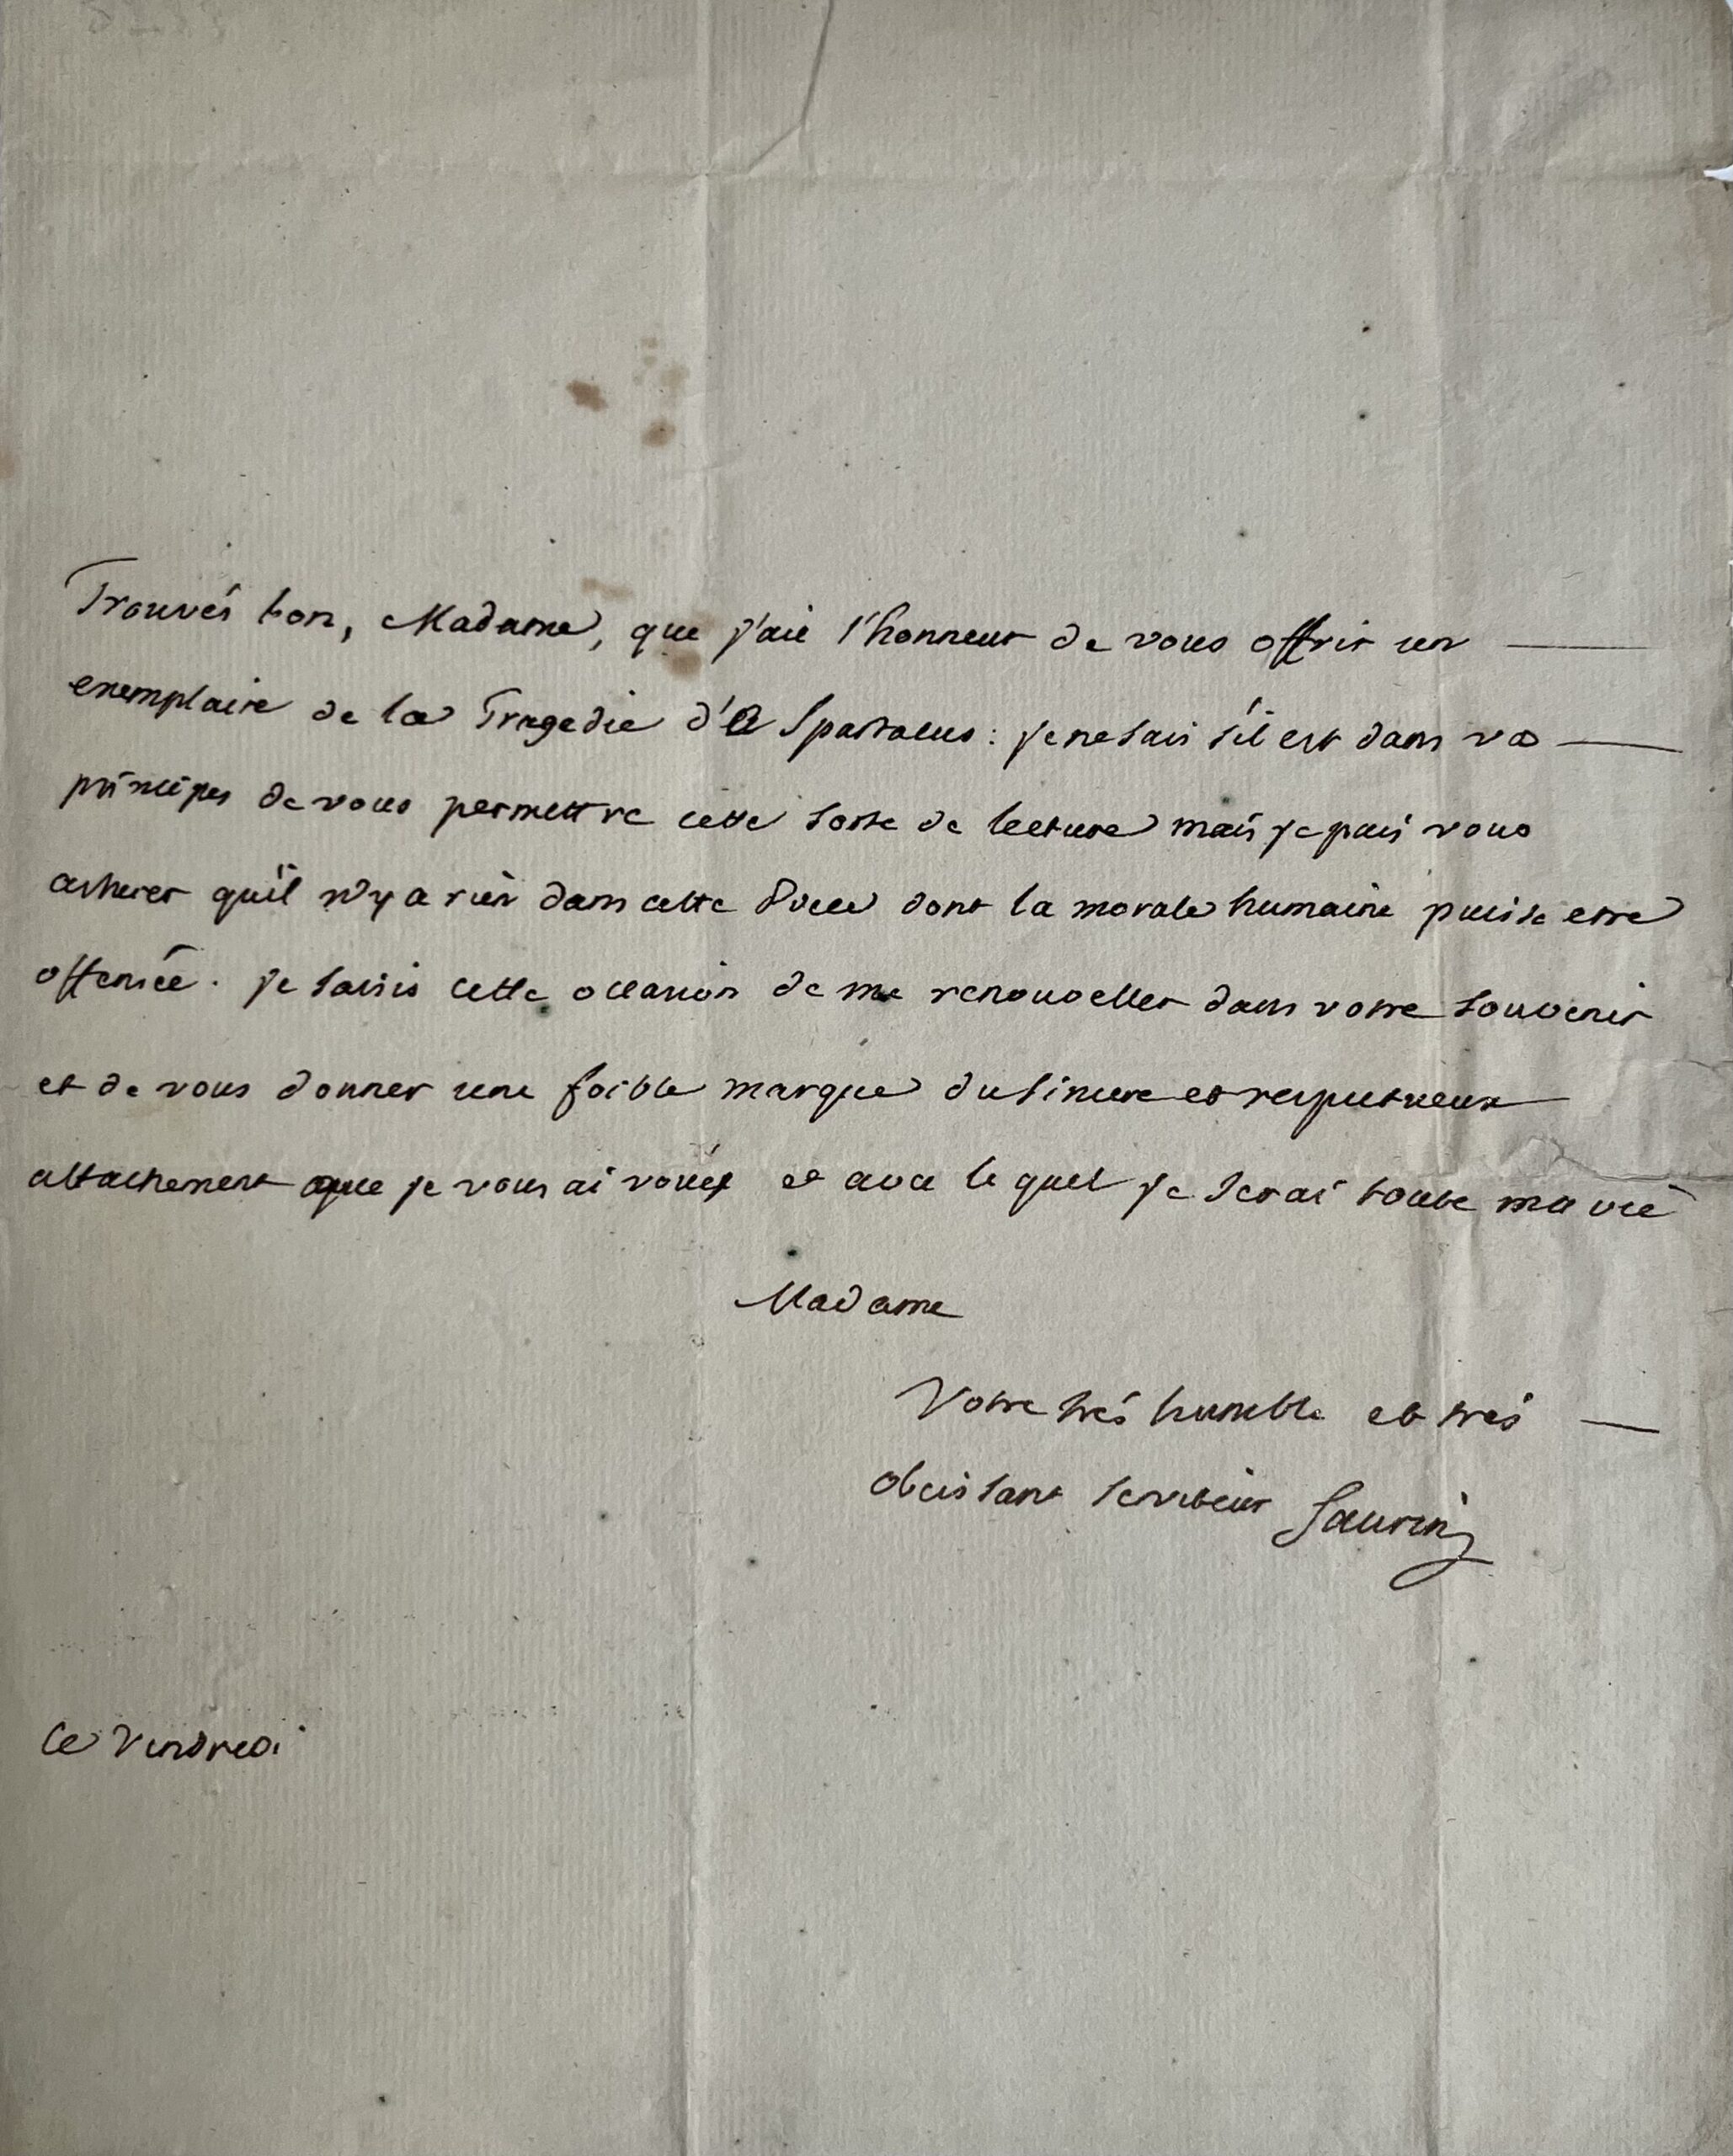 Trouvés bon, Madame, que j'aie l'honneur de vous offrir un
exemplaire de la Tragedie de Spartacus : je ne sais s'il est dans vos
principes de vous permettre cette sorte de lecture mais je puis vous
assurer qu'il n'y a rien dans cette Piece dont la morale humaine puisse etre
offensée. je saisis cette occasion de me renouveller dans votre souvenir
et de vous donner une foible marque du sincere et respectueux
attachement que je vous ai voué et avec le quel je serai toute ma vie
Madame
Votre trés humble et trés
obeissant serviteur Saurin
ce Vendredi